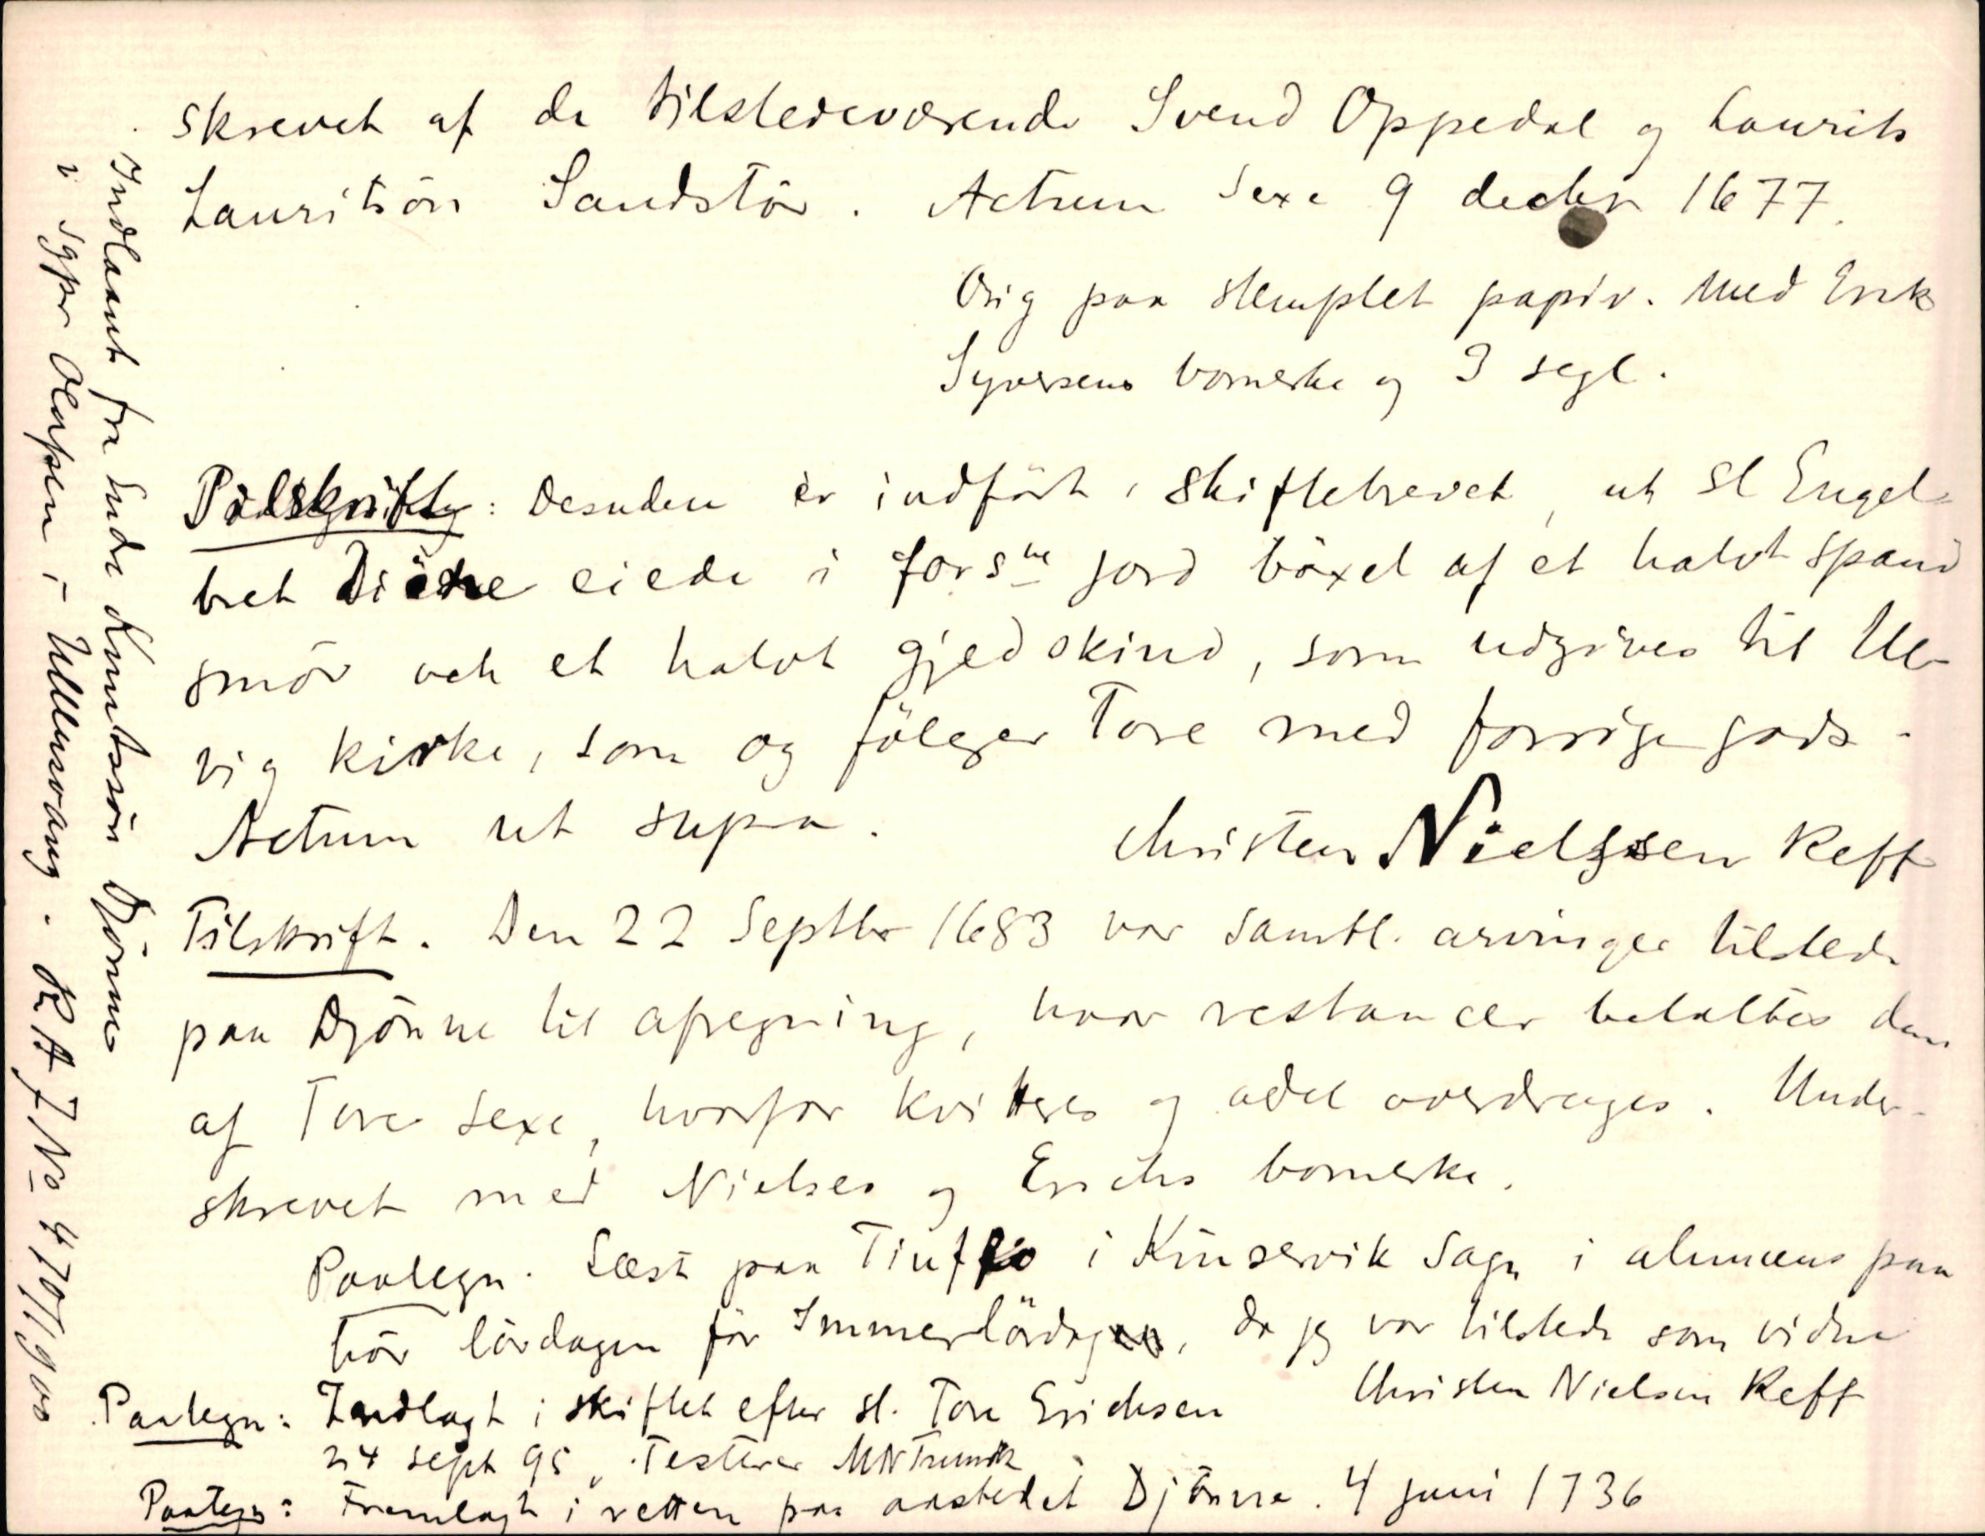 skrevet af de tilstedeværende Svend Oppedal og Laurits
Lauritsön Sandstör. Actum Sexe 9 decbr 1677.
Orig paa stemplet papir. Med Erik
Syversens bomerke og 3 segl.
Påtskrift: Desuden er indfört i skiftebrevet, at Sl Engel-
bret Diöne eiede i forsne jord böxel af et halvt spand
smör och et halvt gjedskind, som udgives til Ul-
vig kirke, som og fölger Tore med forrige gods.
Actum ut supra. Christen Nielssen Reff
Tilskrift. Den 22 Septbr 1683 var samtl. arvinger tilstede
paa Djönne til afregning, hvor restancer betaltes dem
af Tore Sexe, hvorfor kvitteres og odel overdrages. Under-
skrevet med Nielses og Erichs bomerke.
Paategn. Læst paa Tiuflo i Kinservik Sogn i almuens paa
hör lördagen för Immerlördagen, da jeg var tilstede som vidne
Christen Nielsen Reff
Paategn: Indlagt i skiftet efter sl. Tore Erichsen
24 sept 95, Testerer MNTrunck
Paategn: Fremlagt i retten paa aastedet Djönne. 4 juni 1736
Indlaant fra Endre Knutssön Djönne
i Sgpr Olafsen i Ullensvang. RA J No 470/1900